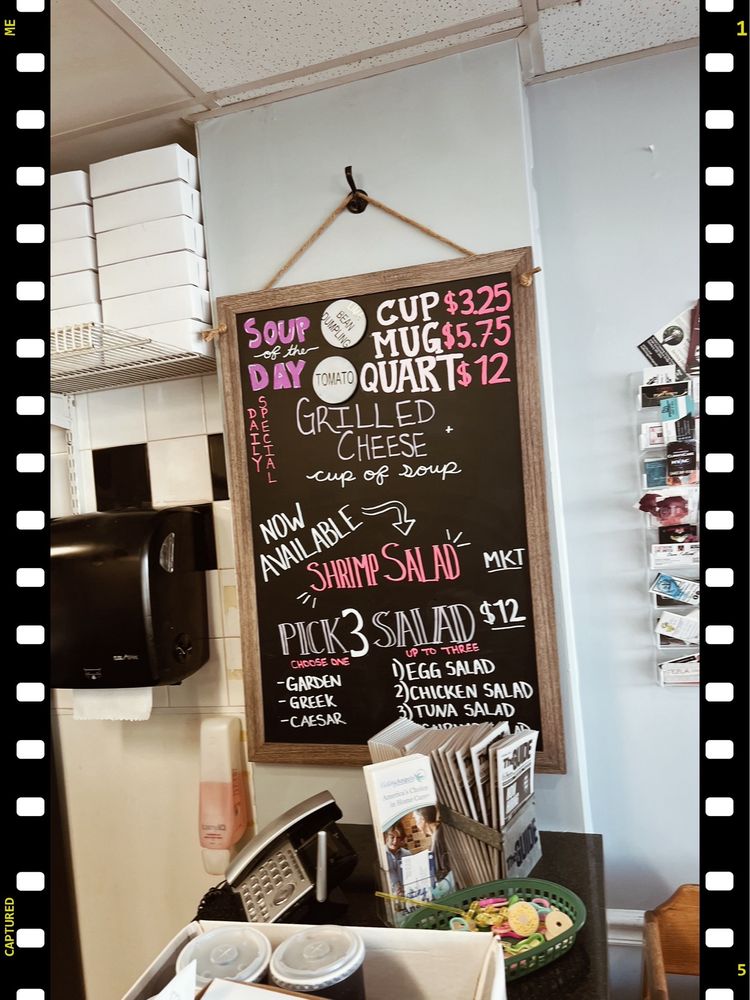 ME
1
SOUP
of the
DAY
BEAN
DUMPLING
TOMATO
CUP $3.25
MUG $5.75
QUART $12
DAILY
SPECIAL
GRILLED
CHEESE +
cup of soup
NOW
AVAILABLE
SHRIMP SALAD MKT
PICK 3 SALAD $12
CHOOSE ONE
-GARDEN
-GREEK
-CAESAR
UP TO THREE
1) EGG SALAD
2) CHICKEN SALAD
3) TUNA SALAD
America's Choice
in Home Care
The GUIDE
The GUIDE
CAPTURED
5